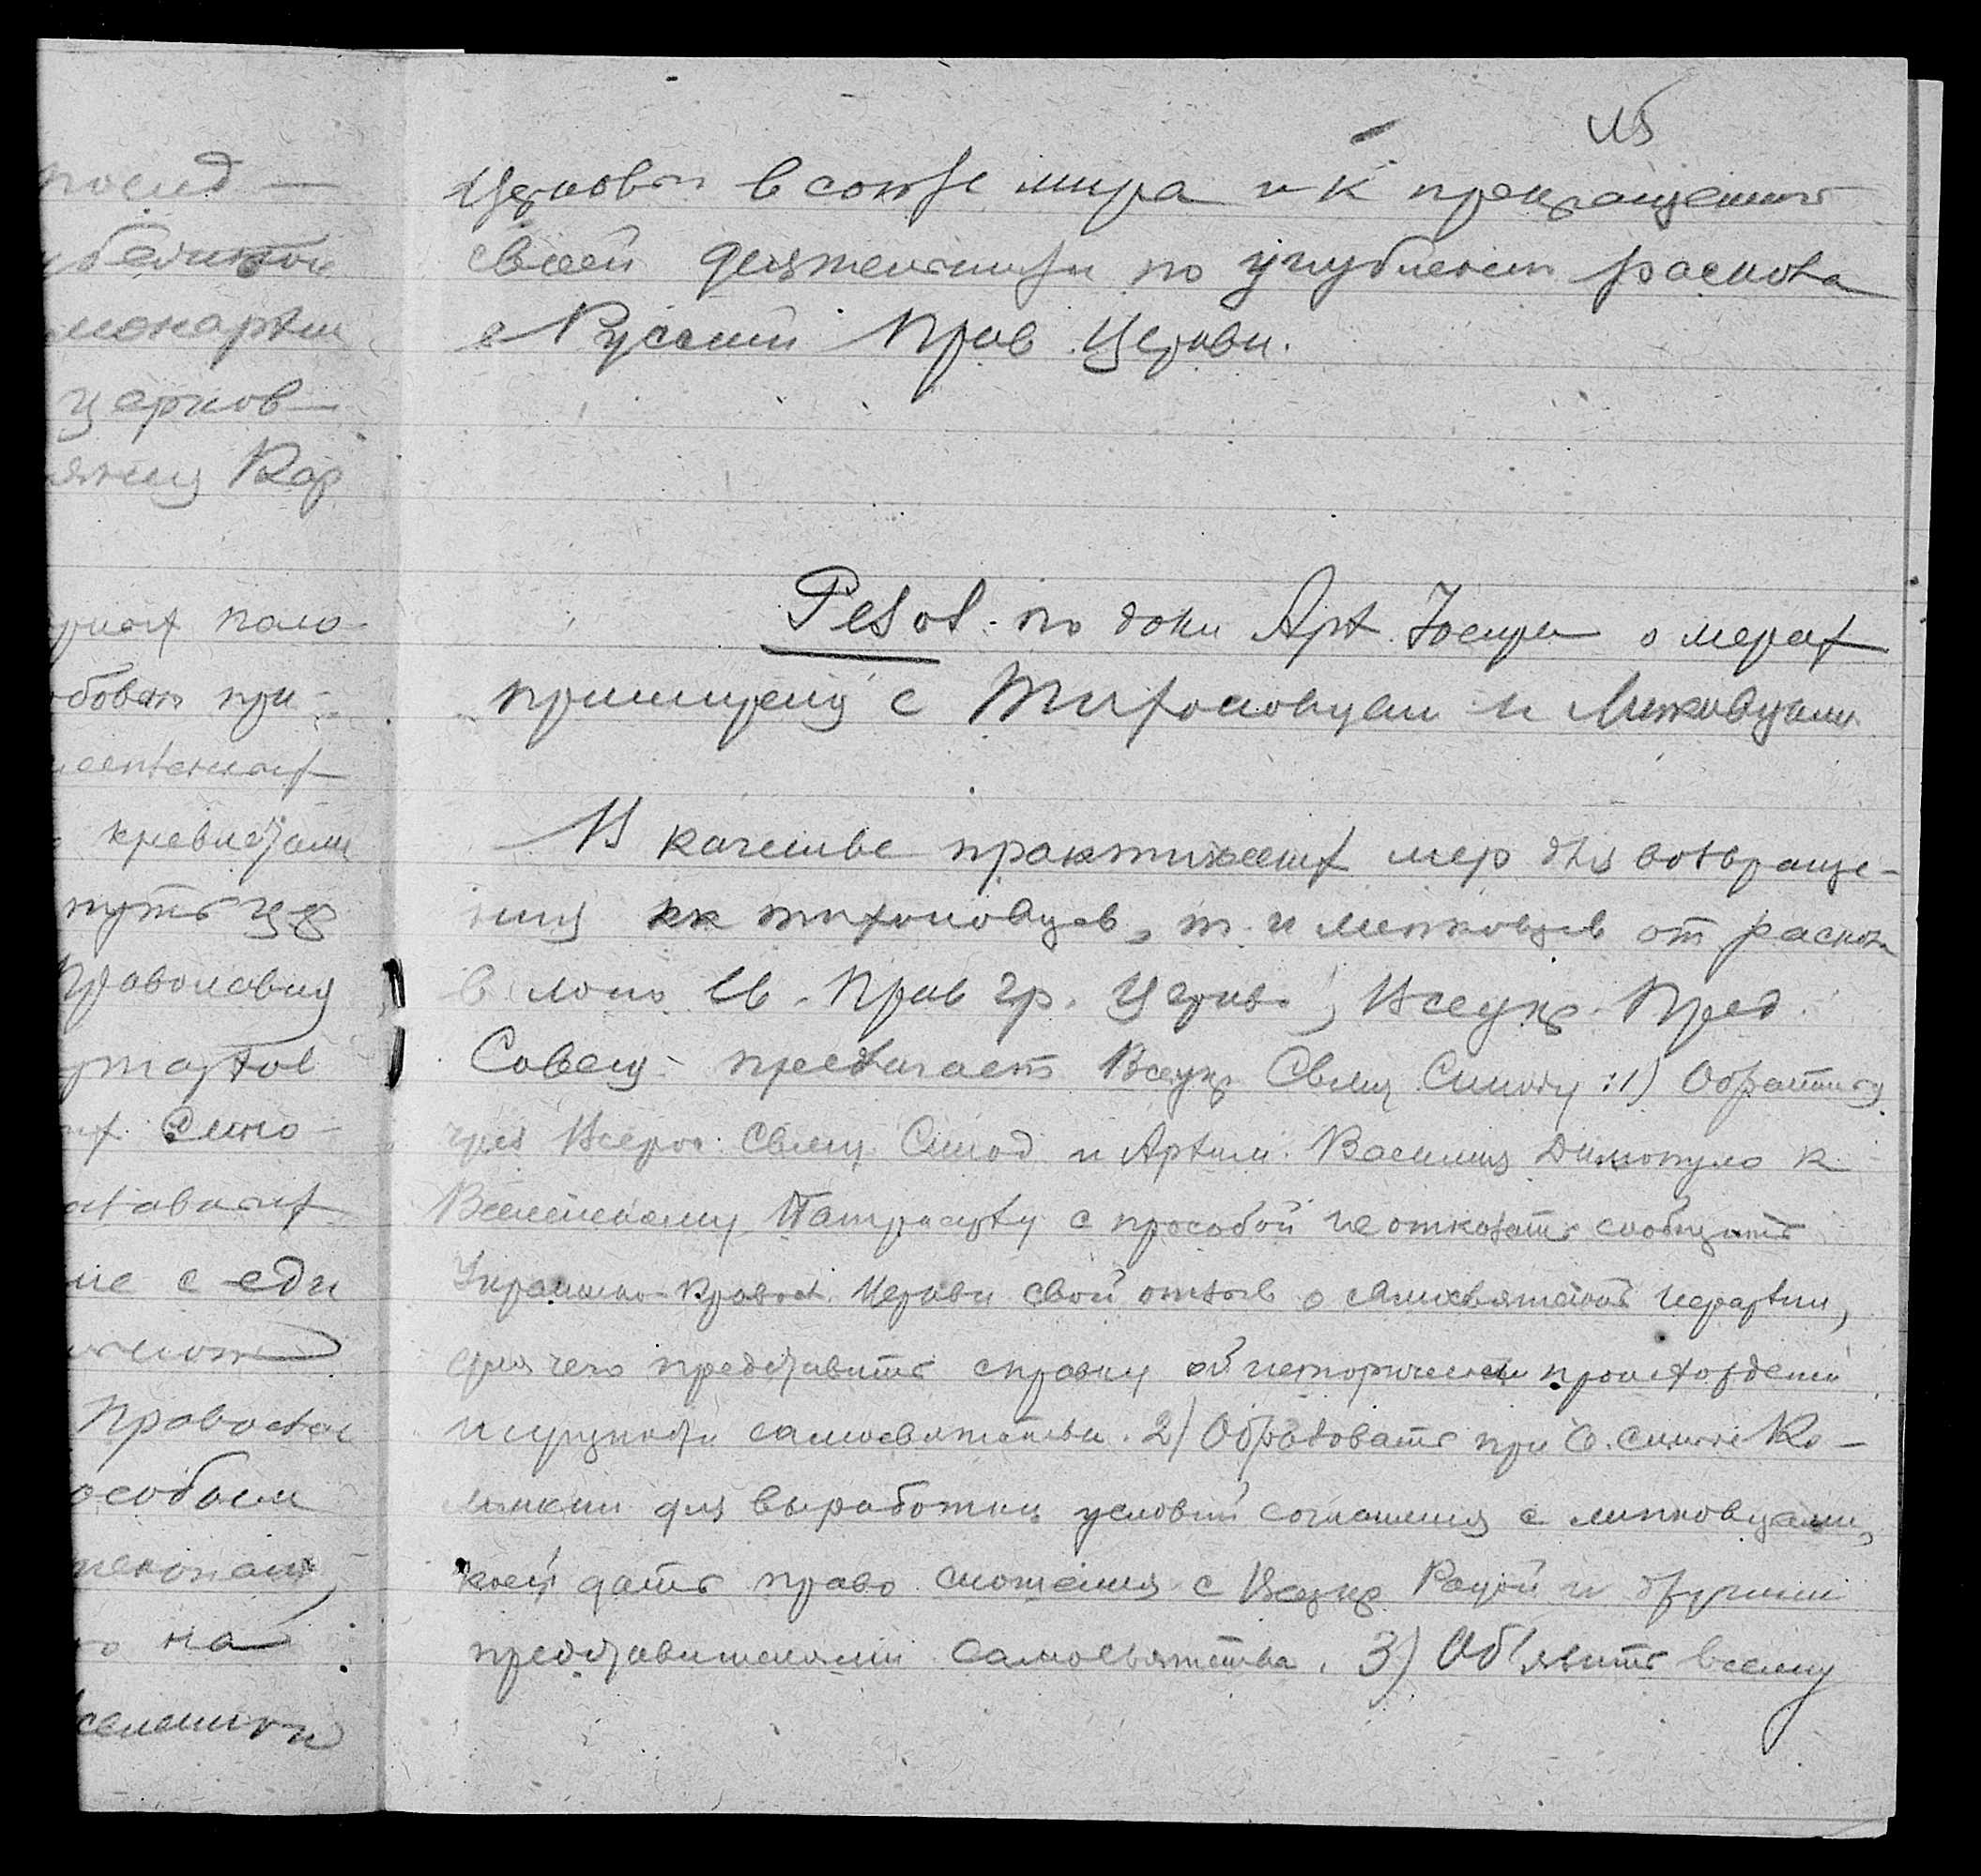 Церковью в союзе мира и к прекращению
своей деятельности по углублению раскола
в Русской Прав Церкви.
Резол. по докл Арх. Иосифа о мерах
примирения с Тихоновцами и Липковцами
В качестве практических мер для возвраще-
ния как тихоновцев, т. и липковцев от раскола
в лоно Св. Прав гр. Церкви, Всеукр. Пред.
Совещ. предлагает Всеукр Свящ Синоду: 1) Обратиться
чрез Всерос. Свящ. Синод и Архим. Василия Димопуло к
Вселенскому Патриарху с просьбой не отказать сообщить
Украинско-Правосл. Церкви свой отзыв о самосвятской иерархии,
для чего представить справку об историческом происхождении
и сущности самосвятства. 2) Образовать при С. Синоде Ко-
миссию для выработки условий соглашения с липковцами,
коей дать право сношения с Всеукр Радой и другими
представителями самосвятства. 3) Об'явить всему
послед-
монархии
церков-
Кар
поло-
при-
путь
Православия
Сино-
с еди
Православ
особым
на